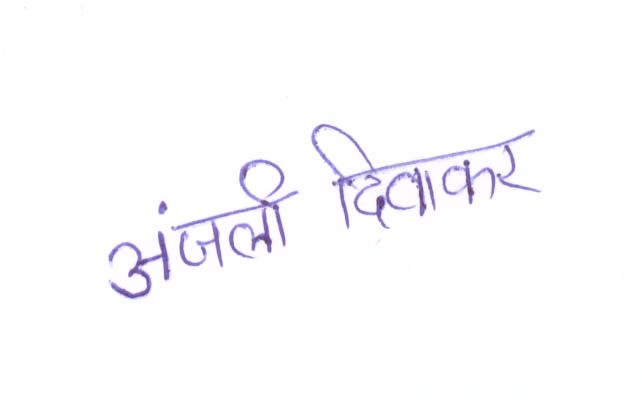 अंजली दिवाकर